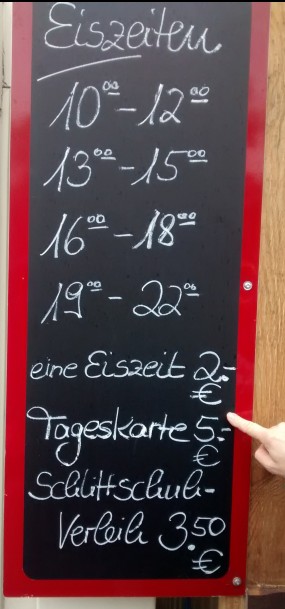 Eiszeiten
10⁰⁰-12⁰⁰
13⁰⁰-15⁰⁰
16⁰⁰-18⁰⁰
19⁰⁰-22⁰⁰
eine Eiszeit 2.-
€
Tageskarte 5.-
€
Schlittschuh-
Verleih 3.50
€